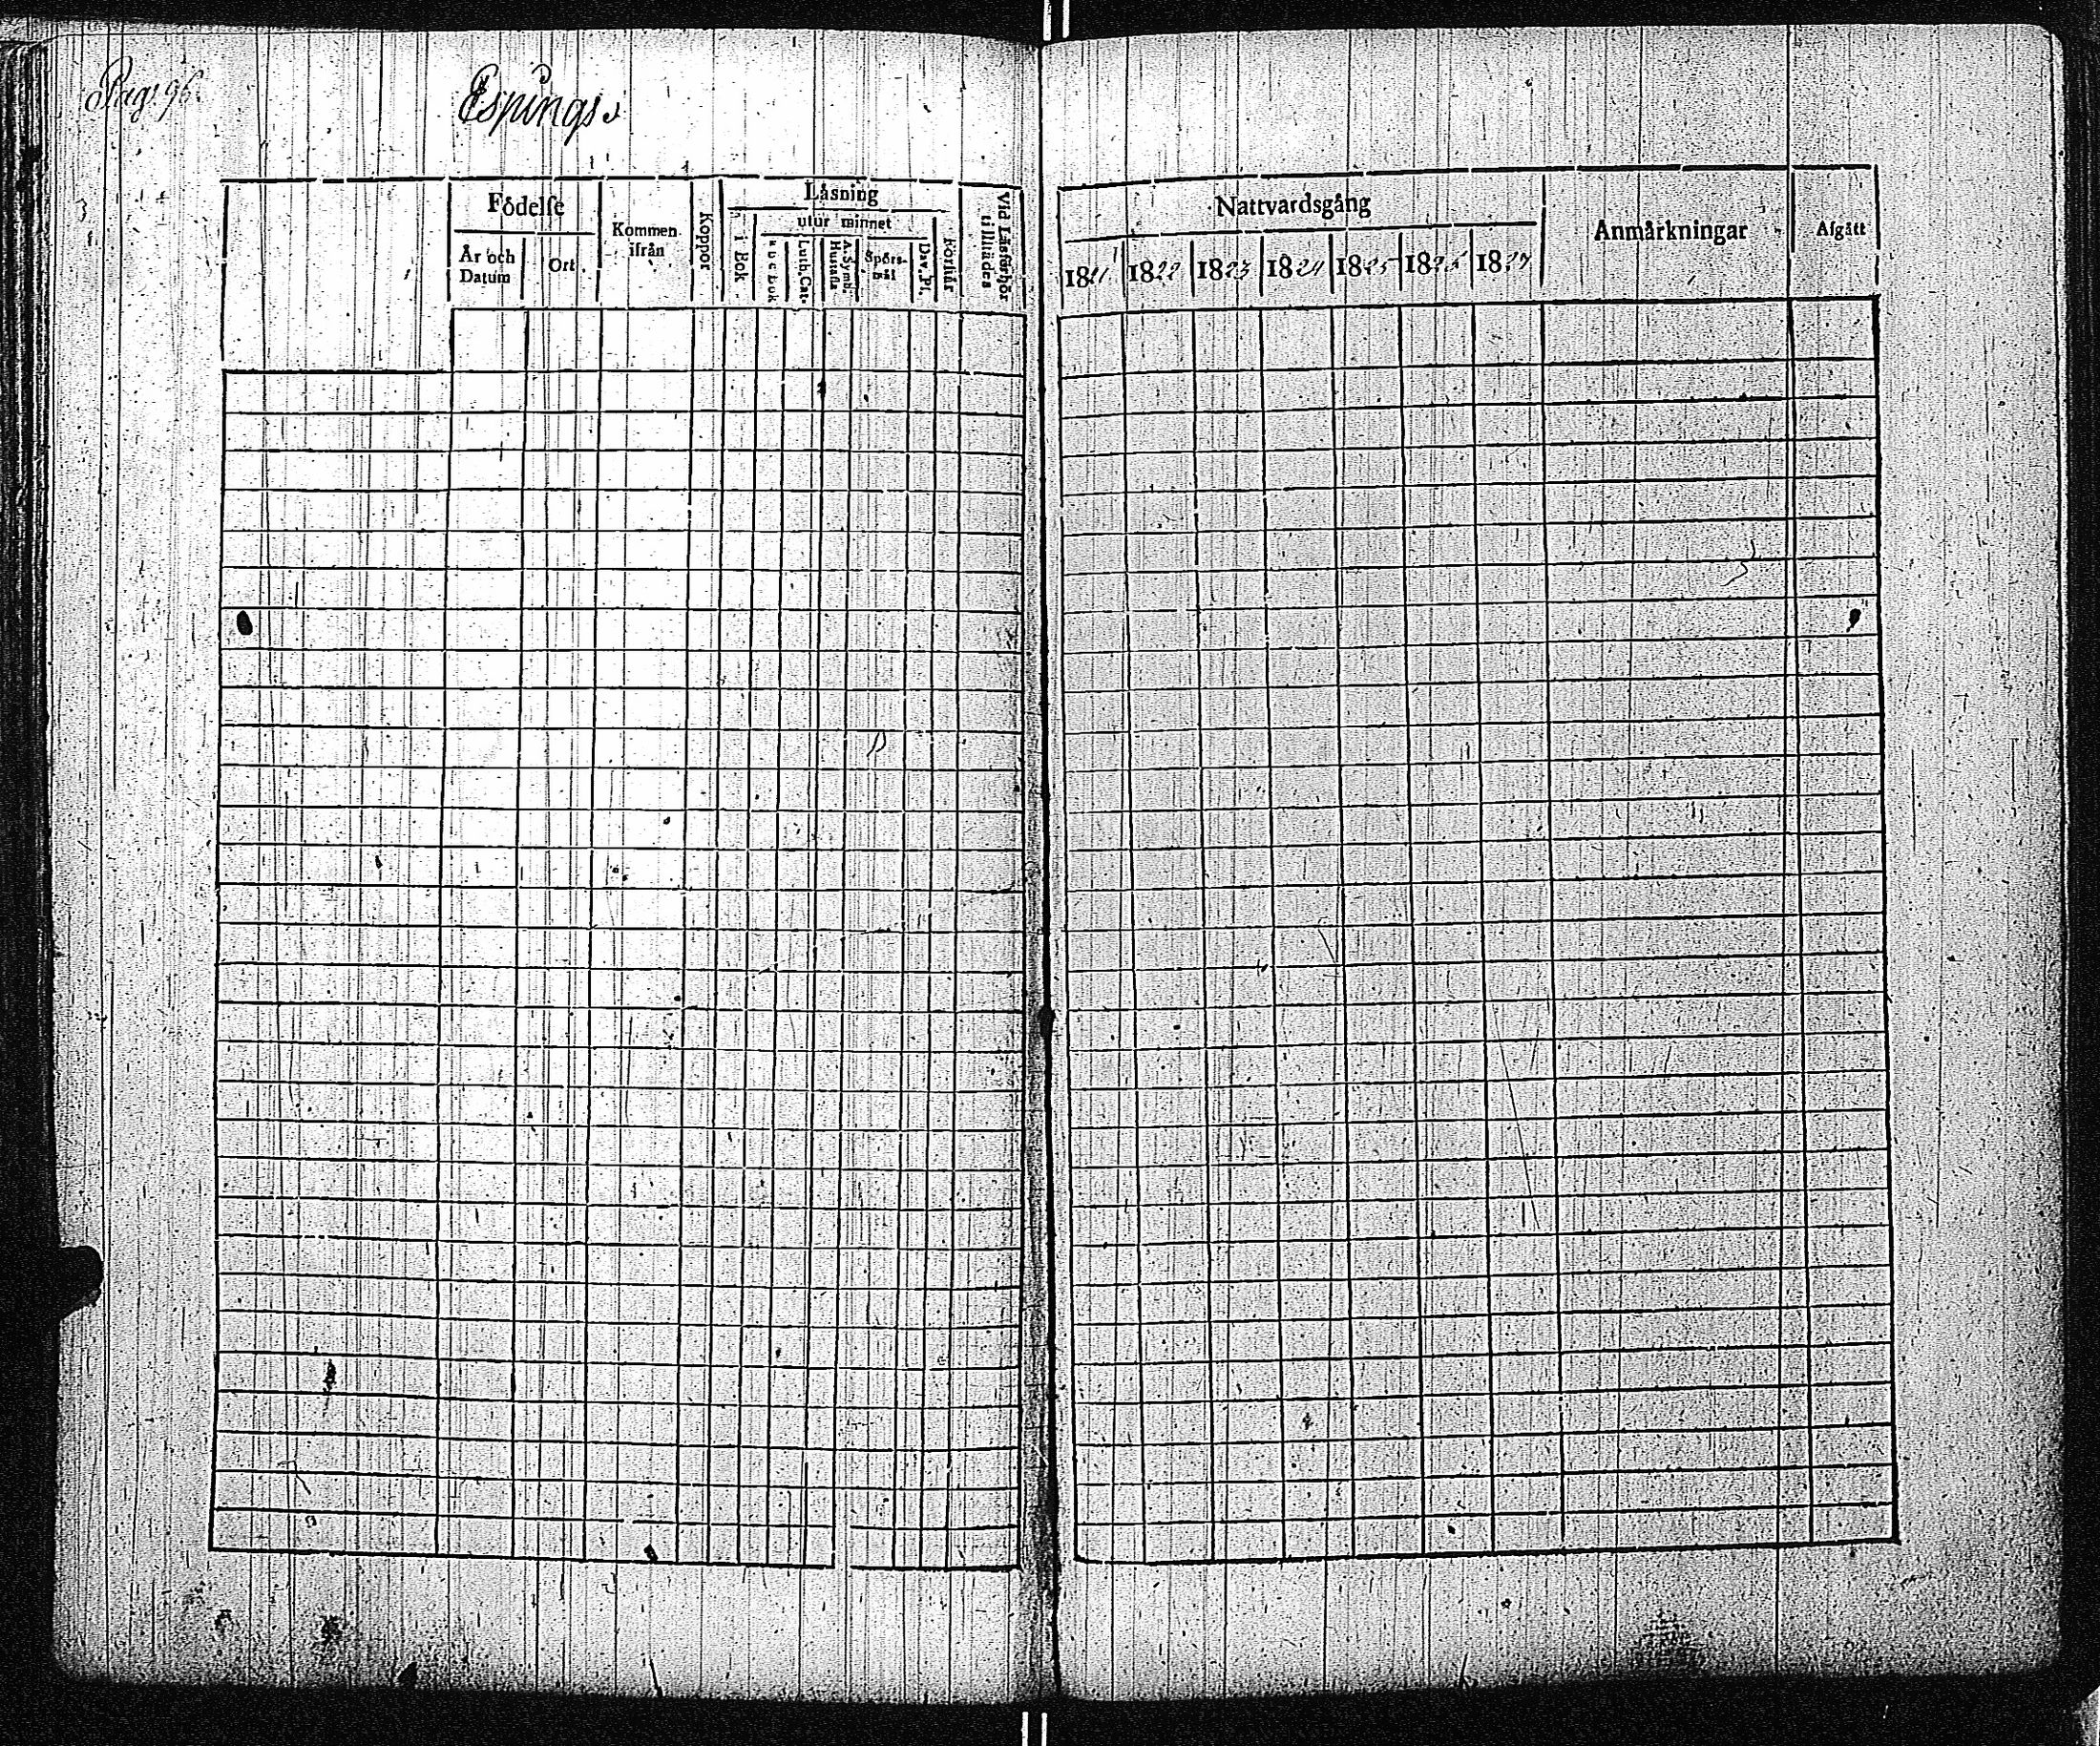 Pag. 96.
Espings
Födelse
År och Datum
Ort
Kommen ifrån
Koppor
Läsning
i Bok
utur minnet
Luth. Cat.
A. Symb.
Hustafla
Spörsmål
Dav. Ps.
Förstår
Vid Läsförhör tillstädes
Nattvardsgång
1821
1822
1823
1824
1825
1826
1827
Anmärkningar
Afgått